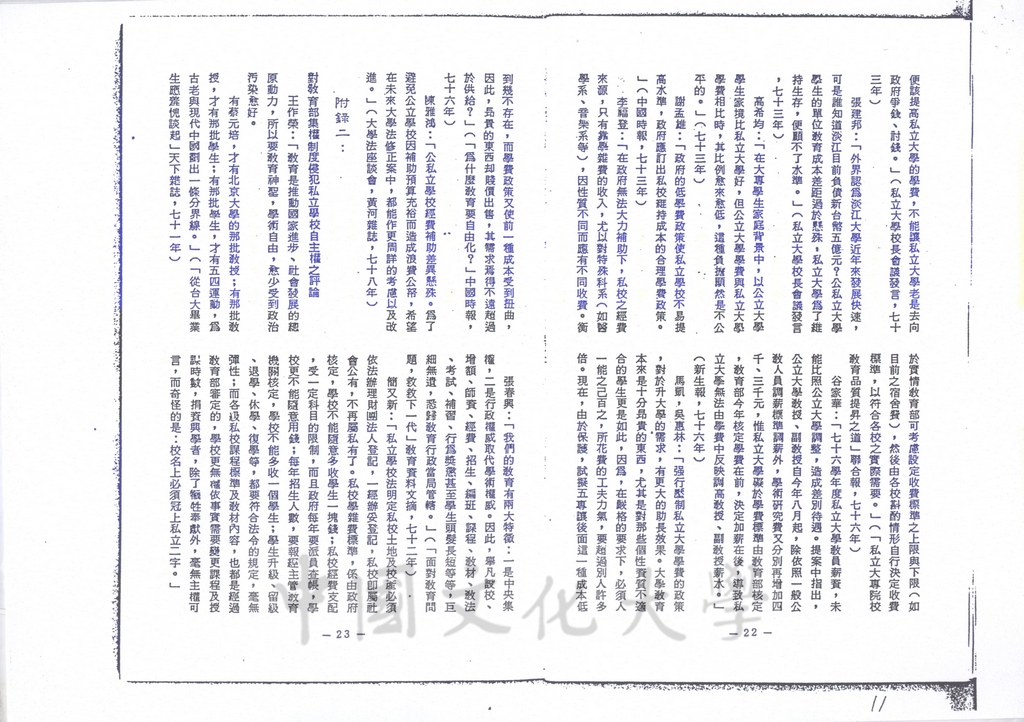 便該提高私立大學的學費，不能讓私立大學老是去向
政府爭錢、討錢。」（私立大學校長會議發言，七十
三年）
張建邦：「外界認為淡江大學近年來發展快速，
可是誰知道淡江目前負債新台幣五億元？公私立大學
學生的單位教育成本差距過於懸殊，私立大學為了維
持生存，便顧不了水準。」（私立大學校長會議發言
，七十三年）
高希均：「在大專學生家庭背景中，以公立大學
學生家境比私立大學好，但公立大學學費與私立大學
學費相比時，其比例愈來愈低，這種負擔顯然是不公
平的。」（七十三年）
謝孟雄：「政府的低學費政策使私立學校不易提
高水準，政府應訂出私校維持成本的合理學費政策。
」（中國時報，七十三年）
李福登：「在政府無法大力補助下，私校之經費
來源，只有靠學雜費的收入，尤以對特殊科系（如醫
學系、音樂系等），因性質不同而應有不同收費。衡
於實情教育部可考慮設定收費標準之上限與下限（如
目前之宿舍費），然後由各校斟酌情形自行決定收費
標準，以符合各校之實際需要。」（「私立大專院校
教育品質提昇之道」聯合報，七十六年）
谷家華：「七十六學年度私立大學教員薪資，未
能比照公立大學調整，造成差別待遇。提案中指出，
公立大學教授、副教授自今年八月起，除依照一般公
教人員調薪標準調薪外，學術研究費又分別再增加四
千、三千元，惟私立大學礙於學費標準由教育部核定
，教育部今年核定學費在前，決定加薪在後，導致私
立大學無法由學費中反映調高教授、副教授薪水。」
（新生報，七十六年）
馬凱，吳惠林：「強行壓制私立大學學費的政策
，對於升大學的需求，有更大的助長效果。大學教育
本來是十分昂貴的東西，尤其是對那些個性資質不適
合的學生更是如此，因為，在嚴格的要求下，必須人
一能之己百之，所花費的工夫力氣，要超過別人許多
倍。現在，由於保護，試擬五專讓後面這一種成本低
— 22 —
到幾不存在，而學費政策又使前一種成本受到扭曲，
因此，昂貴的東西卻賤價出售，其需求焉得不遠超過
於供給？」（「為什麼教育要自由化？」中國時報，
七十六年）
陳雅鴻：「公私立學校經費補助差異懸殊。為了
避免公立學校因補助預算充裕而造成浪費公帑，希望
在未來大學法修正案中，都能作更周詳的考慮以及改
進。」（大學法座談會，黃河雜誌，七十八年）
附錄二：
對教育部集權制度侵犯私立學校自主權之評論
王作榮：「教育是推動國家進步、社會發展的總
原動力，所以要教育神聖，學術自由，愈少受到政治
污染愈好。
有蔡元培，才有北京大學的那批教授；有那批教
授，才有那批學生；有那批學生，才有五四運動，為
古老與現代中國劃出一條分界線。」（「從台大畢業
生應驚愧談起」天下雜誌，七十一年）
張春興：「我們的教育有兩大特徵：一是中央集
權，二是行政權威取代學術權威。因此，舉凡設校、
增額、師資、經費、招生、編班、課程、教材、教法
、考試、補習、行為獎懲甚至學生頭髮長短等等，巨
細無遺，悉歸教育行政當局管轄。」（「面對教育問
題，救救下一代」教育資料文摘，七十二年）
簡又新：「私立學校法明定私校土地及校產必須
依法辦理財團法人登記，一經辦妥登記，私校即屬社
會公有，不再屬私有了。私校學雜費標準，係由政府
核定，學校不能隨意多收學生一塊錢；私校經費支配
，受一定科目的限制，而且政府每年要派員查帳，學
校更不能隨意用錢；每年招生人數，要報經主管教育
機關核定，學校不能多收一個學生；學生升級、留級
、退學、休學、復學等，都要符合法令的規定，毫無
彈性；而各級私校課程標準及教材內容，也都是經過
教育部審定的，學校更無權依事實需要變更課程及授
課時數，捐資興學者，除了犧牲奉獻外，毫無主權可
言，而奇怪的是：校名上必須冠上私立二字。」
— 23 —
中國文化大學
11